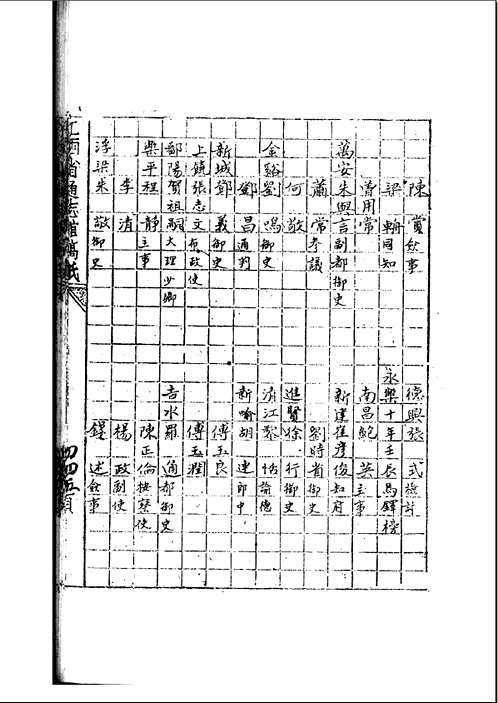 陳賞僉事
梁翰同知
曾用常
萬安朱與言副都御史
蕭常參議
何敬
金谿劉鳴御史
鄭昌通判
新城鄧義御史
上饒張志文布政使
鄱陽賀祖嗣大理少卿
樂平程靜主事
李清
浮梁朱敬御史
德興張式檢討
永樂十年壬辰馬鐸榜
南昌鮑英主事
新建崔彥俊知府
劉時省御史
進賢徐行御史
清江黎恬諭德
新喻胡璉郎中
傅玉良
傅玉潤
吉水羅通都御史
陳正倫按察使
楊政副使
鍾述僉事
江西省通志館稿紙
四四五頁